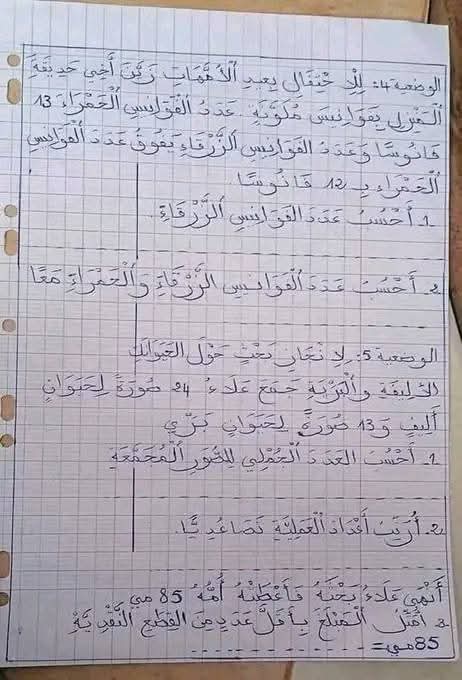 الوضعية 4: لِلْاحْتِفَالِ بِعِيدِ الْأُمَّهَاتِ زَيَّنَ أَخِي حَدِيقَةَ
الْمَنْزِلِ بِفَوَانِيسَ مُلَوَّنَةٍ. عَدَدُ الْفَوَانِيسِ الْحَمْرَاءِ 13
فَانُوسًا وَعَدَدُ الفَوَانِيسِ الزَّرْقَاءِ يَفُوقُ عَدَدَ الْفَوَانِيسِ
الْحَمْرَاءِ بِـ 12 فَانُوسًا.
1. أَحْسُبُ عَدَدَ الفَوَانِيسِ الزَّرْقَاءِ.
2. أَحْسُبُ عَدَدَ الْفَوَانِيسِ الزَّرْقَاءِ وَالْحَمْرَاءِ مَعًا
الوضعية 5: لِإنْجَازِ بَحْثٍ حَوْلَ الحَيَوَانَاتِ
الأَلِيفَةِ وَالْبَرِّيَّةِ جَمَعَ عَلَاءُ 24 صُورَةً لِحَيَوَانٍ
أَلِيفٍ وَ 13 صُورَةً لِحَيَوَانٍ بَرِّي
1. أَحْسُبُ العَدَدَ الْجُمْلِي لِلصُّوَرِ الْمُجَمَّعَةِ
2. أُرَتِّبُ أَعْدَادَ الْعَمَلِيَّةِ تَصَاعُدِيًّا.
أَنْهَى عَلَاءُ بَحْثَهُ فَأَعْطَتْهُ أُمُّهُ 85 مي
3. أُمَثِّلُ الْمَبْلَغَ بِأَقَلِّ عَدَدٍ مِنَ القِطَعِ النَّقْدِيَّةِ
85 مي =